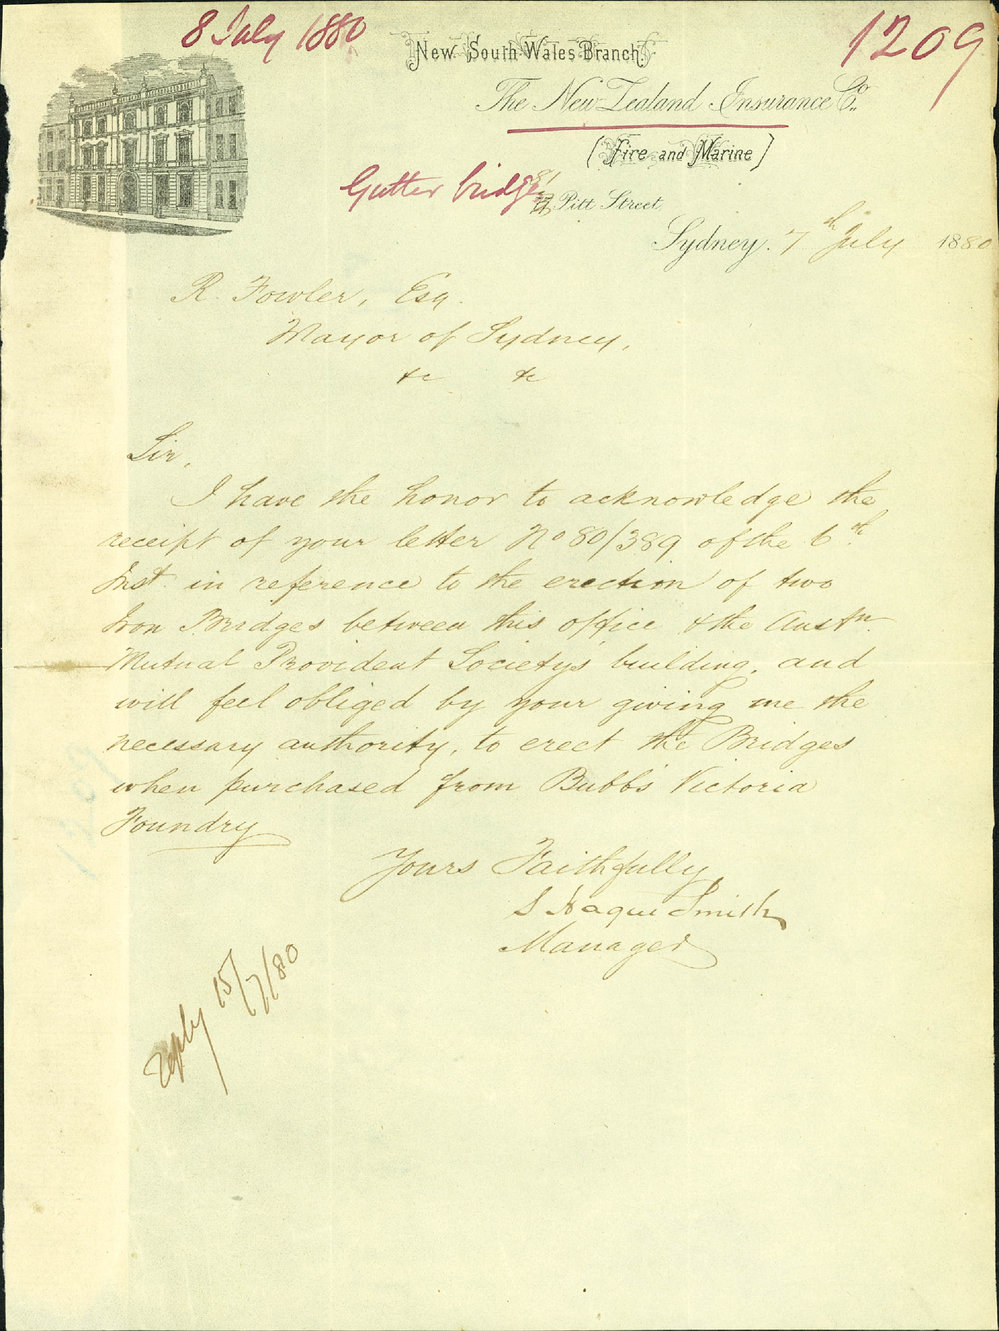 8 July 1880
1209
New South Wales Branch.
The New Zealand Insurance Co.
(Fire and Marine)
Gutter bridge
Pitt Street
Sydney. 7th July 1880
R. Fowler, Esq.
Mayor of Sydney,
&c &c
Sir,
I have the honor to acknowledge the
receipt of your letter No 80/389 of the 6th
Inst. in reference to the erection of two
Iron Bridges between this office & the Austn.
Mutual Provident Society's building, and
will feel obliged by your giving me the
necessary authority, to erect the Bridges
when purchased from Bubb's Victoria
Foundry
Yours Faithfully
S Hague Smith
Manager
reply 15/7/80